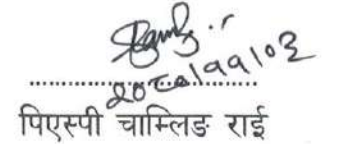 २०८०।११।०३
पिएस्पी चाम्लिङ राई